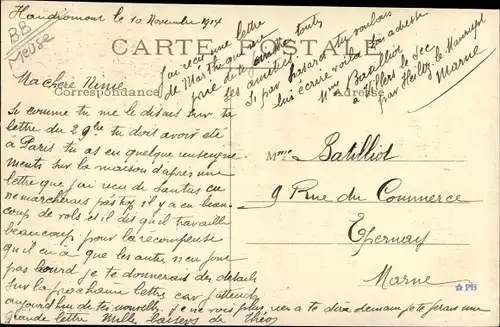 Haudiomont le 10 Novembre 1914
BB
Meuse
CARTE POSTALE
J'ai reçu une lettre
de Marthe qui me
prie de te faire toutes
ses amitiés
si par hasard tu voulais
lui écrire voilà son adresse
Mme Batilliot
à Villers le Sec
par Heiltz le Maurupt
Marne
Correspondance
Adresse
Ma chère Ninie
Si comme tu me le disais sur ta
lettre du 29 9bre tu dois avoir été
à Paris tu as en quelque renseigne
ments sur la maison d'après une
lettre que j'ai reçu de Santus ça
ne marcherais pas il y a en beau
coup de vols et il dis qu'il travaille
beaucoup pour la récompense
qu'il en a que les autres n'en font
pas lourd je te donnerais des détails
sur la prochaine lettre car j'attends
aujourd'hui de tes nouvelles je ne vois plus rien a te dire demain je te ferais une
grande lettre Milles baisers de
Mme Batilliot
9 Rue du Commerce
Epernay
Marne
PB